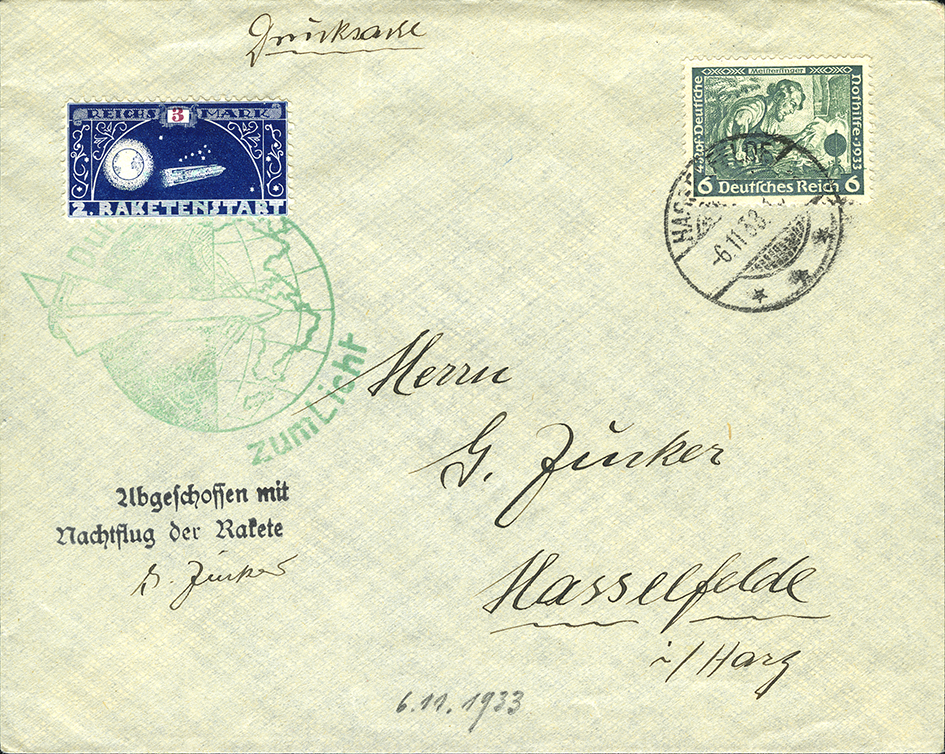 Drucksache
REICHS 3 MARK
2. RAKETENSTART
Meistersinger
4+2Rpf·Deutsche
Nothilfe·1933
6 Deutsches Reich 6
HASSELFELDE
-6.11.33.
zum Licht
Herrn
G. Zucker
Hasselfelde
i/Harz
Abgeschossen mit
Nachtflug der Rakete
G. Zucker
6.11.1933